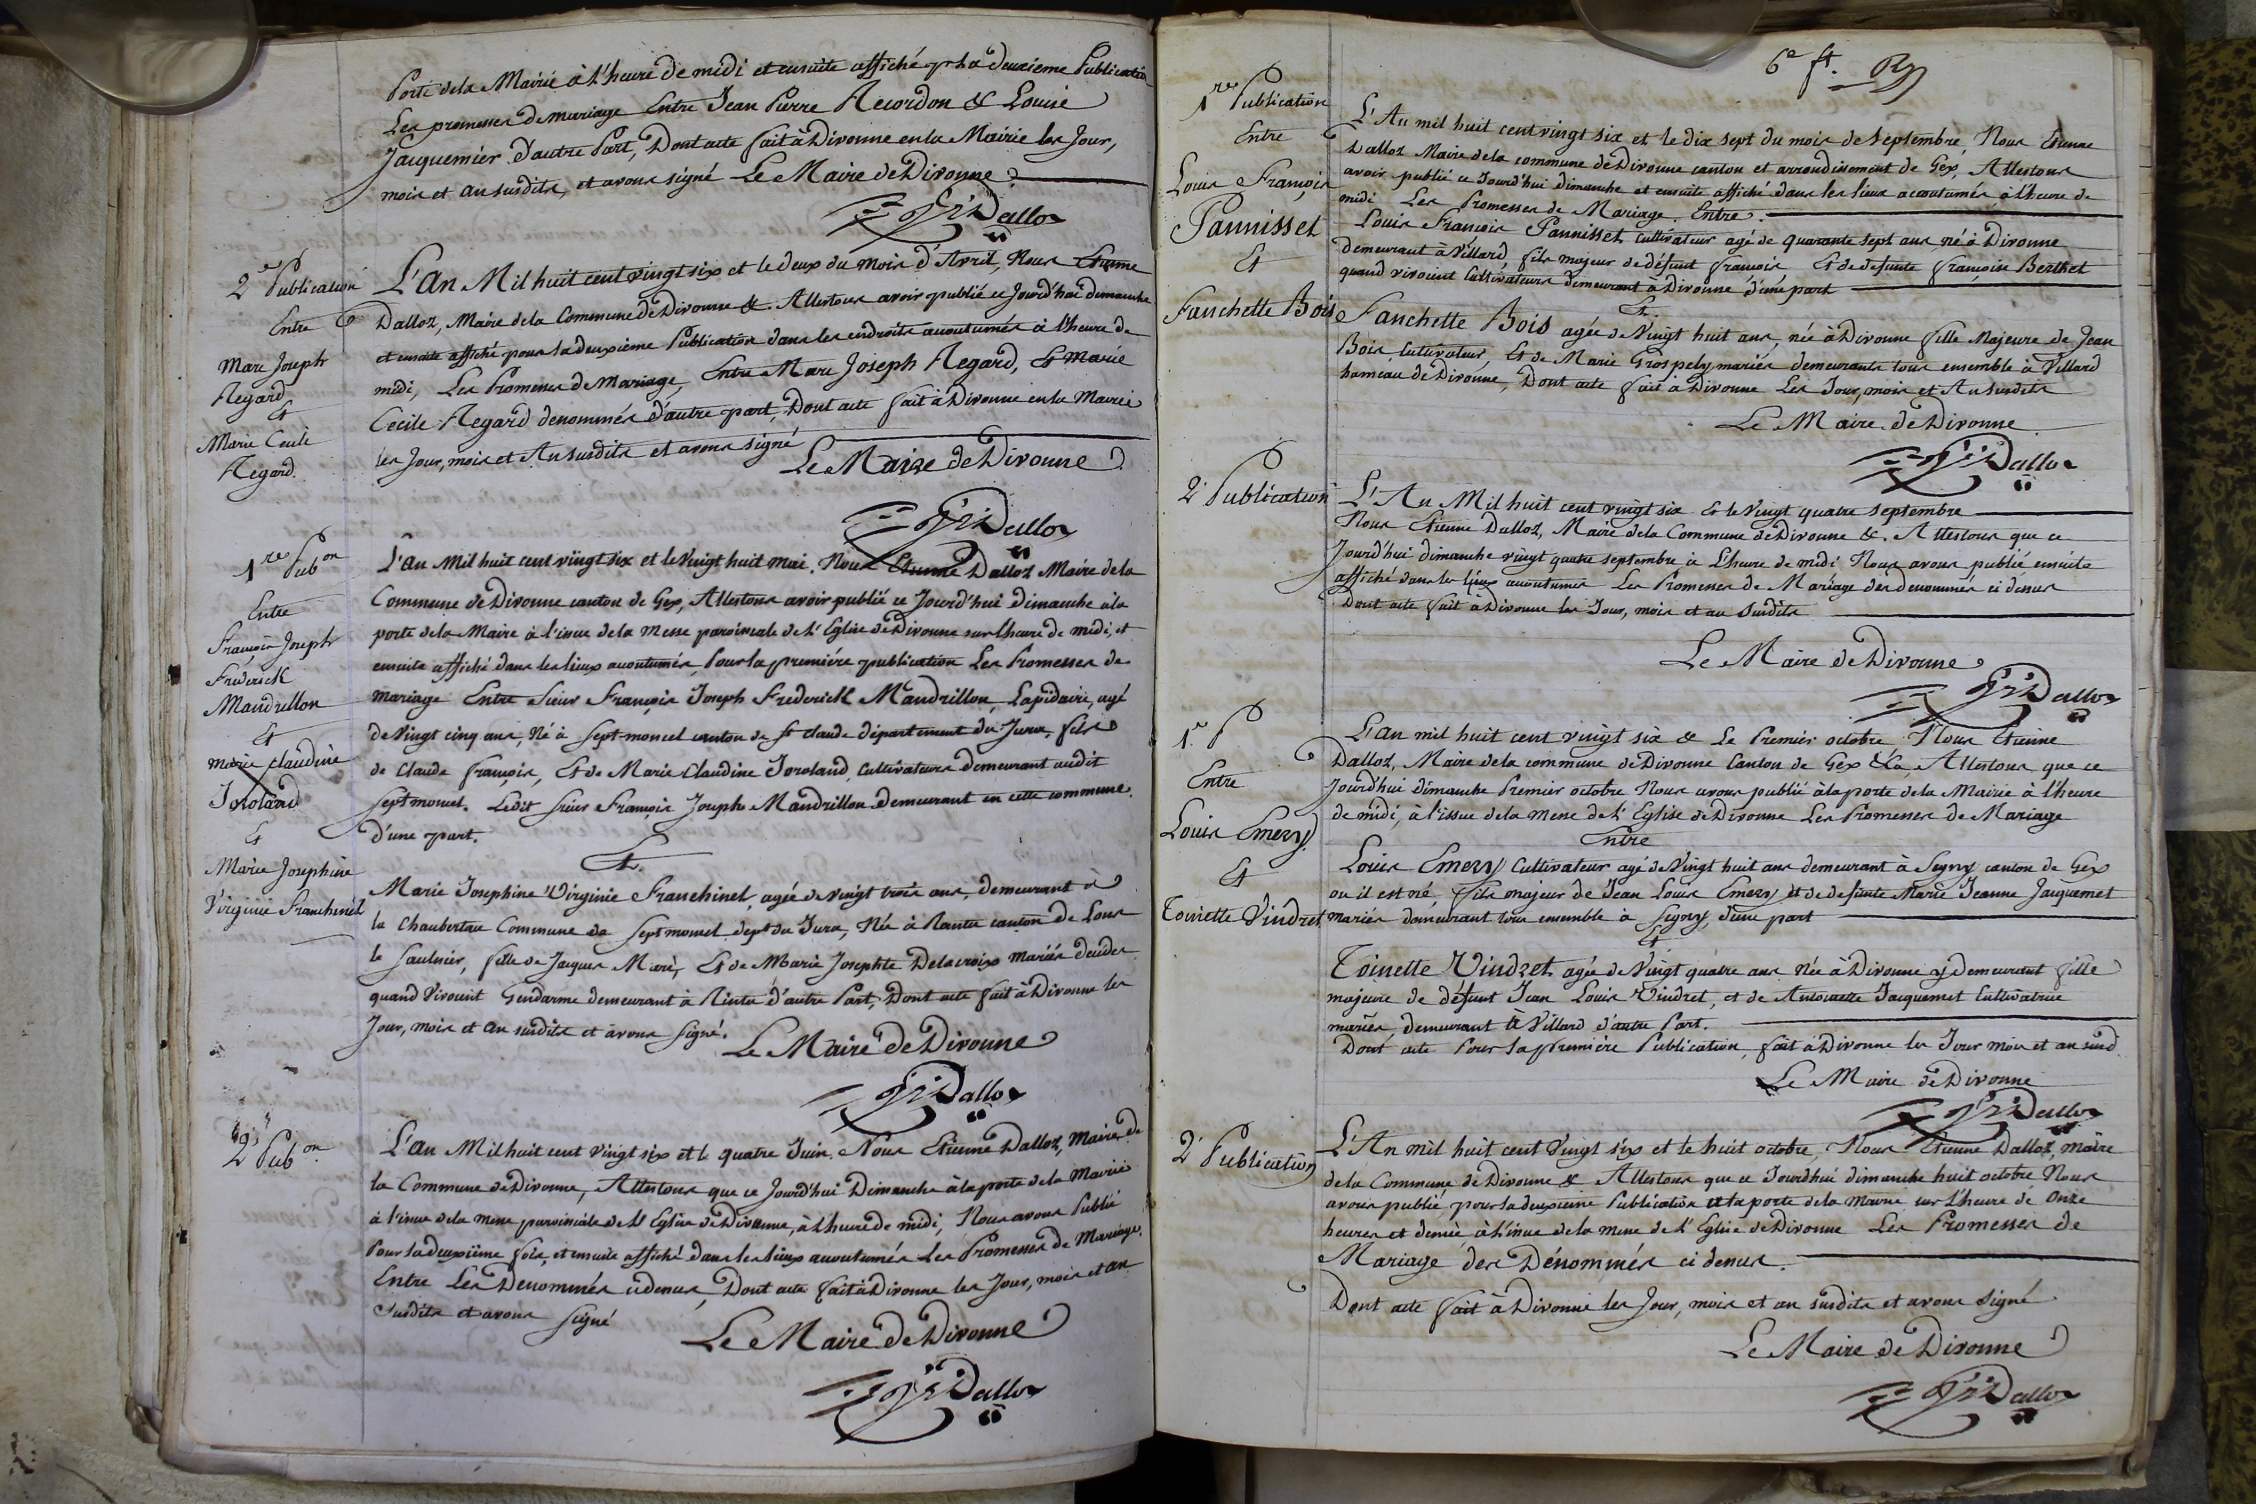 Porte dela Mairie à l'heure de midi et ensuite affiché pr la deuxieme Publication
Les promesses de mariage Entre Jean Pierre Recordon & Louise
Jacquemier d'autre Part, Dont acte fait à Divonne en la Mairie les Jour,
mois et an susdits, et avons signé Le Maire de Divonne
Dalloz
2e Publication
Entre
Marc Joseph
Regard
Et
Marie Cecile
Regard.
L'An Mil huit cent vingt six et le deux du mois d'Avril, Nous Etienne
Dalloz, Maire dela Commune de Divonne &. Attestons avoir publié ce Jourd'hui dimanche
et ensuite affiché pour la deuxième Publication dans les endroits accoutumés à l'heure de
midi, Les Promesses de Mariage, Entre Marc Joseph Regard, Et Marie
Cécile Regard denommés d'autre part, Dont acte fait à Divonne en la Mairie
les Jour, mois et An susdits et avons signé
Le Maire de Divonne
Dalloz
1re Pubon
Entre
François Joseph
Fréderick
Mandrillon
Et
marie claudine
Joroland
Et
Marie Josephine
Virginie Franchinel
L'an Mil huit cent vingt six et le vingt huit mai. Nous Etienne Dalloz Maire de la
Commune de Divonne canton de Gex, Attestons avoir publié ce Jourd'hui Dimanche à la
porte dela Maire à l'issue dela Messe paroissiale de l'Eglise de Divonne sur l'heure de midi, et
ensuite affiché dans les lieux accoutumés Pour la première publication Les Promesses de
mariage Entre Sieur François Joseph Frederick Mandrillon, Lapidaire, agé
de Vingt cinq ans, Né à Septmoncel canton de St Claude département du Jura, fils
de Claude françois, Et de Marie Claudine Joroland, Cultivateurs demeurant audit
Septmoncel. Ledit Sieur François Joseph Mandrillon demeurant en cette commune.
d'une part.
Et.
Marie Josephine Virginie Franchinel, agée de vingt trois ans, demeurant à
la Chaubertau Commune de Septmoncel dept du Jura, Née à Rantu canton de Lons
le Saulnier, fille de Jacques Marie, Et de Marie Josephte Delacroix mariés decedés
quand Vivoient Gendarme demeurant à Rintu d'autre Part, Dont acte fait à Divonne les
Jour, mois et an susdits et avons signé.
Le Maire de Divonne
Dalloz
2e Pubon
L'an Mil huit cent vingt six et le quatre Juin. Nous Etienne Dalloz, Maire de
la Commune de Divonne, Attestons que ce Jourd'hui Dimanche à la porte dela Mairie
à l'issue dela Messe paroissiale de l'Eglise de Divonne, à l'heure de midi, Nous avons Publié
Pour la deuxième fois, et ensuite affiché dans les lieux accoutumés Les Promesses de Mariage.
Entre Les Denommés cidessus, Dont acte fait à Divonne les Jour, mois et an
susdits et avons signé
Le Maire de Divonne
Dalloz
6e ft.
1re Publication
Entre
Louis François
Pannisset
Et
Fanchette Bois
L'An mil huit cent vingt six et le dix sept du mois de Septembre, Nous Etienne
Dalloz Maire dela commune de Divonne canton et arrondissement de Gex, Attestons
avoir publié ce Jourd'hui dimanche et ensuite affiché dans les lieux accoutumés à l'heure de
midi Les Promesses de Mariage. Entre.
Louis François Pannisset cultivateur agé de quarante sept ans né à Divonne
demeurant à Villard, fils majeur de défunt François, Et de defunte Françoise Berthet
quand vivoient Cultivateurs demeurant à Divonne d'une part
Et.
Fanchette Bois agée de Vingt huit ans, née à Divonne fille Majeure de Jean
Bois, Cultivateur, Et de Marie Grospely mariés demeurants tous ensemble à Villard
hameau de Divonne, Dont acte fait à Divonne Les Jour, mois et An susdits
Le Maire de Divonne
Dalloz
2e Publication
L'An Mil huit cent vingt six Et le Vingt quatre septembre
Nous Etienne Dalloz, Maire dela Commune de Divonne &. Attestons que ce
Jourd'hui dimanche vingt quatre septembre à L'heure de midi Nous avons publié ensuite
affiché dans les lieux accoutumés Les Promesses de Mariage des denommés ci dessus
Dont acte fait à Divonne les Jour, mois et an susdits
Le Maire de Divonne
Dalloz
1re P
Entre
Louis Emery
Et
Toinette Vindret
L'an mil huit cent vingt six & Le Premier octobre Nous Etienne
Dalloz, Maire dela commune de Divonne Canton de Gex &a, Attestons que ce
Jourd'hui dimanche Premier octobre Nous avons publié à la porte dela Mairie à l'heure
de midi, à l'issue dela Messe de l'Eglise de Divonne Les Promesses de Mariage
Entre
Louis Emery Cultivateur agé de Vingt huit ans demeurant à Segny canton de Gex
ou il est né, fils majeur de Jean Louis Emery et de defunte Marie Jeanne Jacquemet
mariés demeurant tous ensemble à Segny, d'une part
Et
Toinette Vindret agée de Vingt quatre ans Née à Divonne y demeurant fille
majeure de défunt Jean Louis Vindret, et de Antoinette Jacquemet Cultivatrice
mariés, demeurant à Villard d'autre Part.
Dont acte Pour la première Publication, fait à Divonne les Jour mois et an susd
Le Maire de Divonne
Dalloz
2e Publication
L'An mil huit cent Vingt six et le huit octobre, Nous Etienne Dalloz, Maire
de la Commune de Divonne & Attestons que ce Jourd'hui dimanche huit octobre Nous
avons publié pour la deuxieme Publication à la porte dela Mairie sur l'heure de Onze
heures et demie à l'issue dela Messe de l'Eglise de Divonne Les Promesses de
Mariage des Dénommés ci dessus.
Dont acte fait à Divonne les Jour, mois et an susdits et avons signé
Le Maire de Divonne
Dalloz